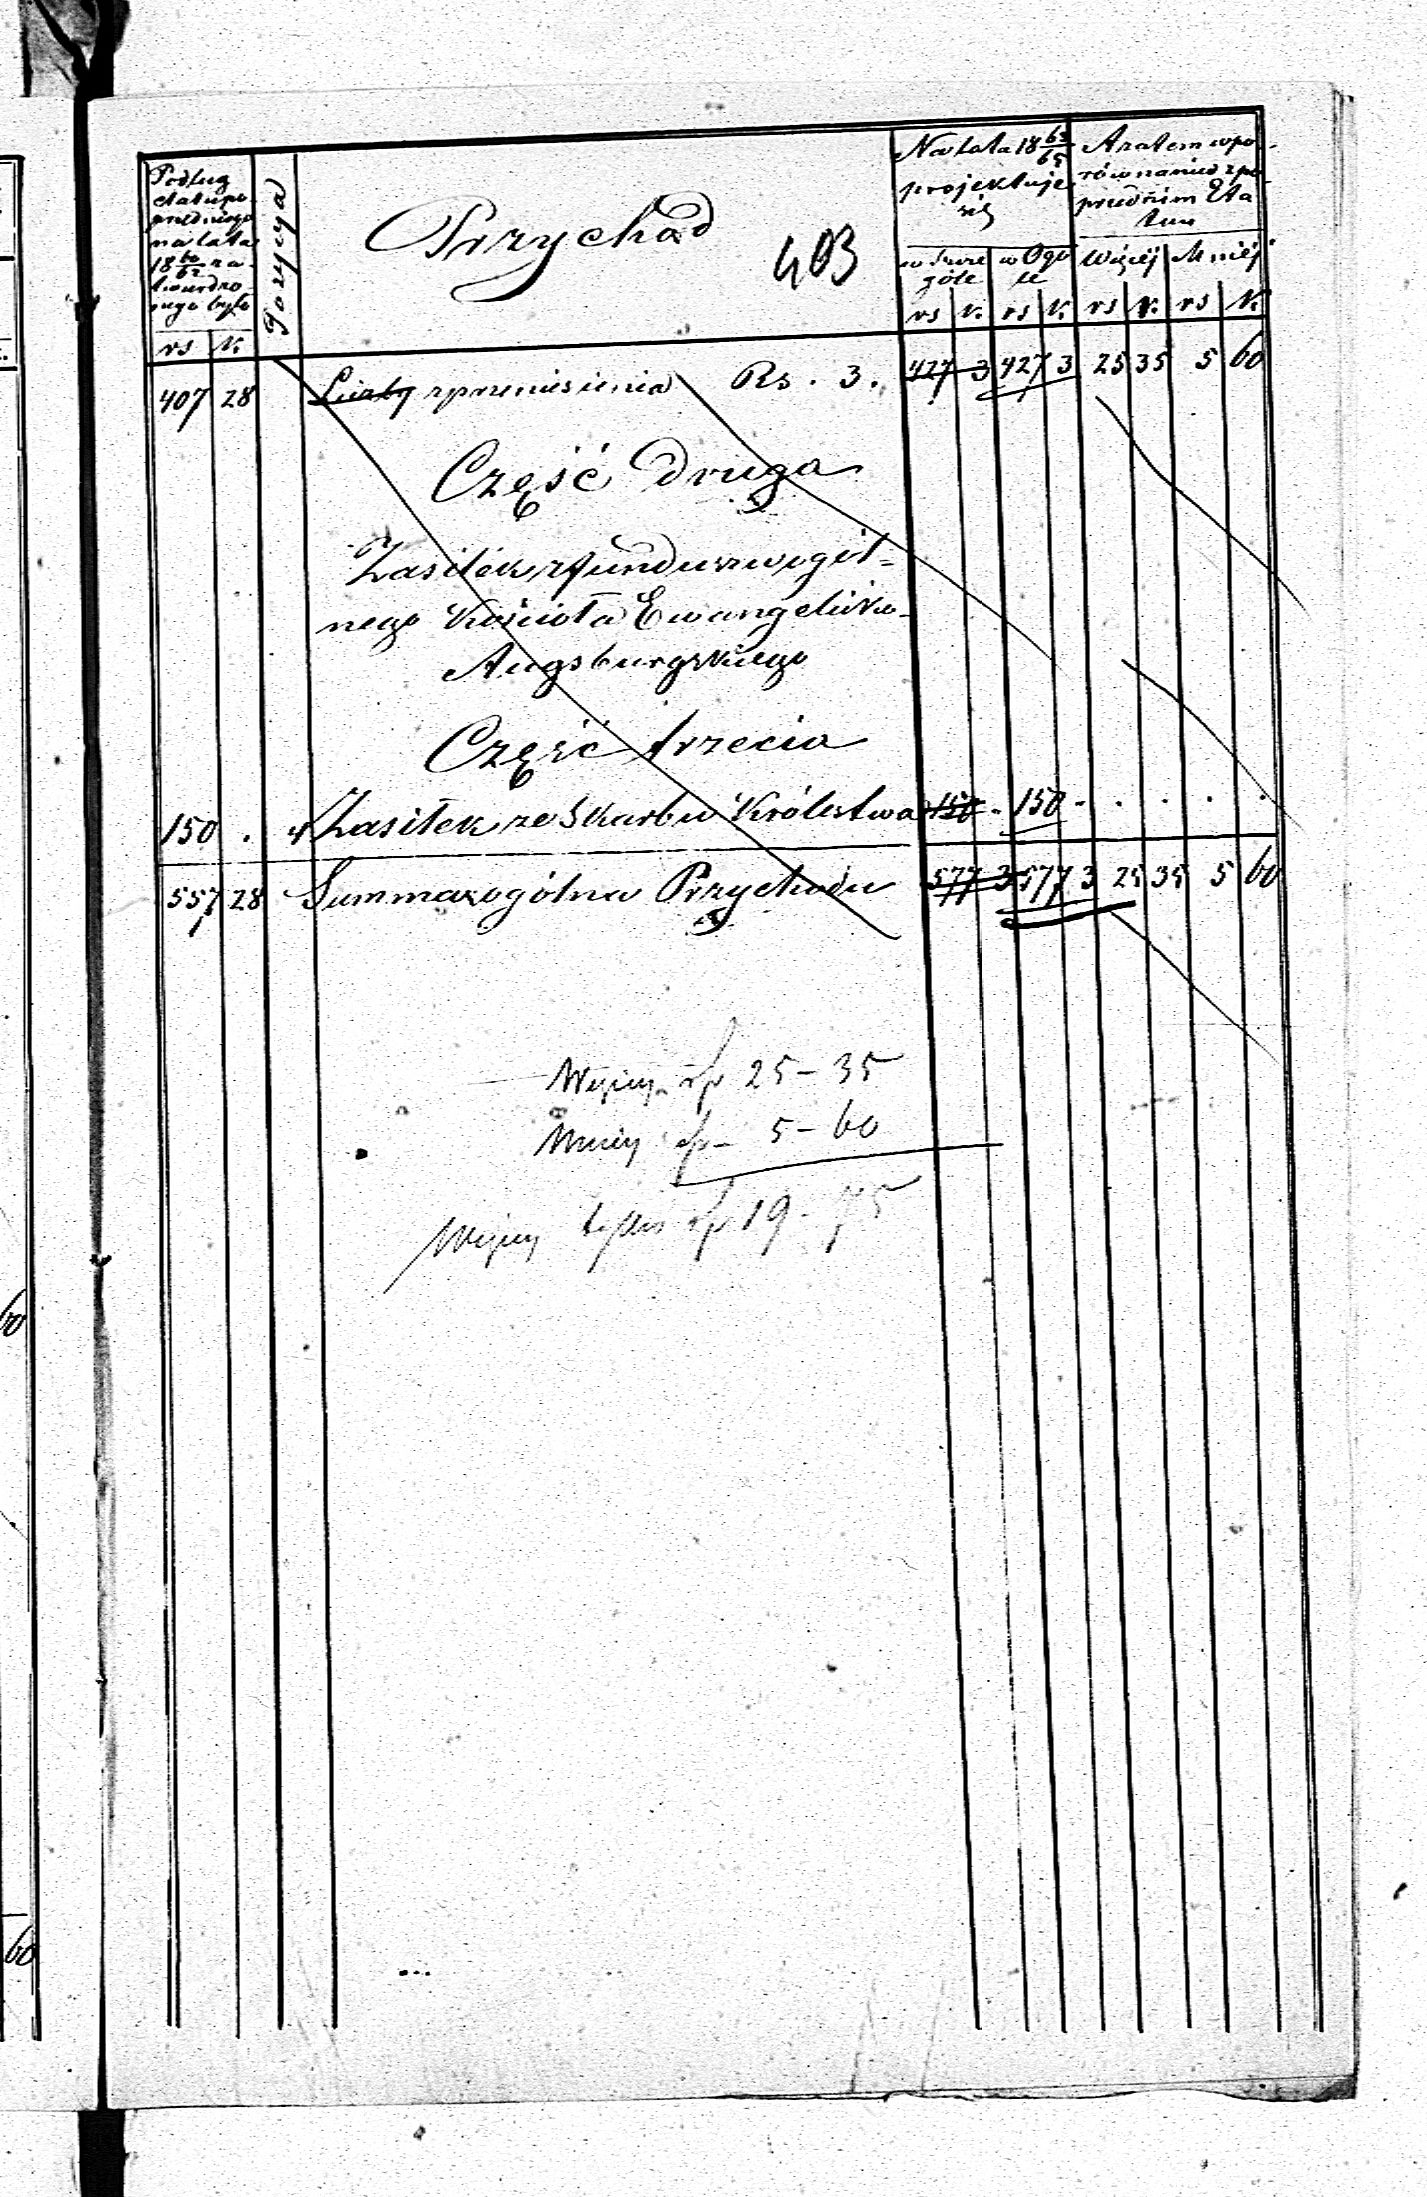 Podług
etatu po-
przedniego
na lata
18 60/62 za-
twierdzo-
nego było
rs k.
Pozycya
Przychód
403
Na lata 18 63/65
projektuje
się
w szcze
góle
w Ogó
le
rs k. rs k.
A zatem w po-
równaniu z po-
przednim Eta
tem
Więcéj Mniéj
rs k. rs k.
407 28 Liczby z przeniesienia Rs. 3. 427 3 427 3 25 35 5 60
Część druga
Zasiłek z funduszu ogól-
nego Kościoła Ewangelicko-
Augsburgskiego
Część trzecia
150 . 4 Zasiłek ze Skarbu Królestwa 150 - 150 - . . . .
557 28 Summa ogólna Przychodu 577 3 577 3 25 35 5 60
Więcey rs 25 - 35
Mniey rs - 5 - 60
Więcey tylko rs 19 - 75
60
60